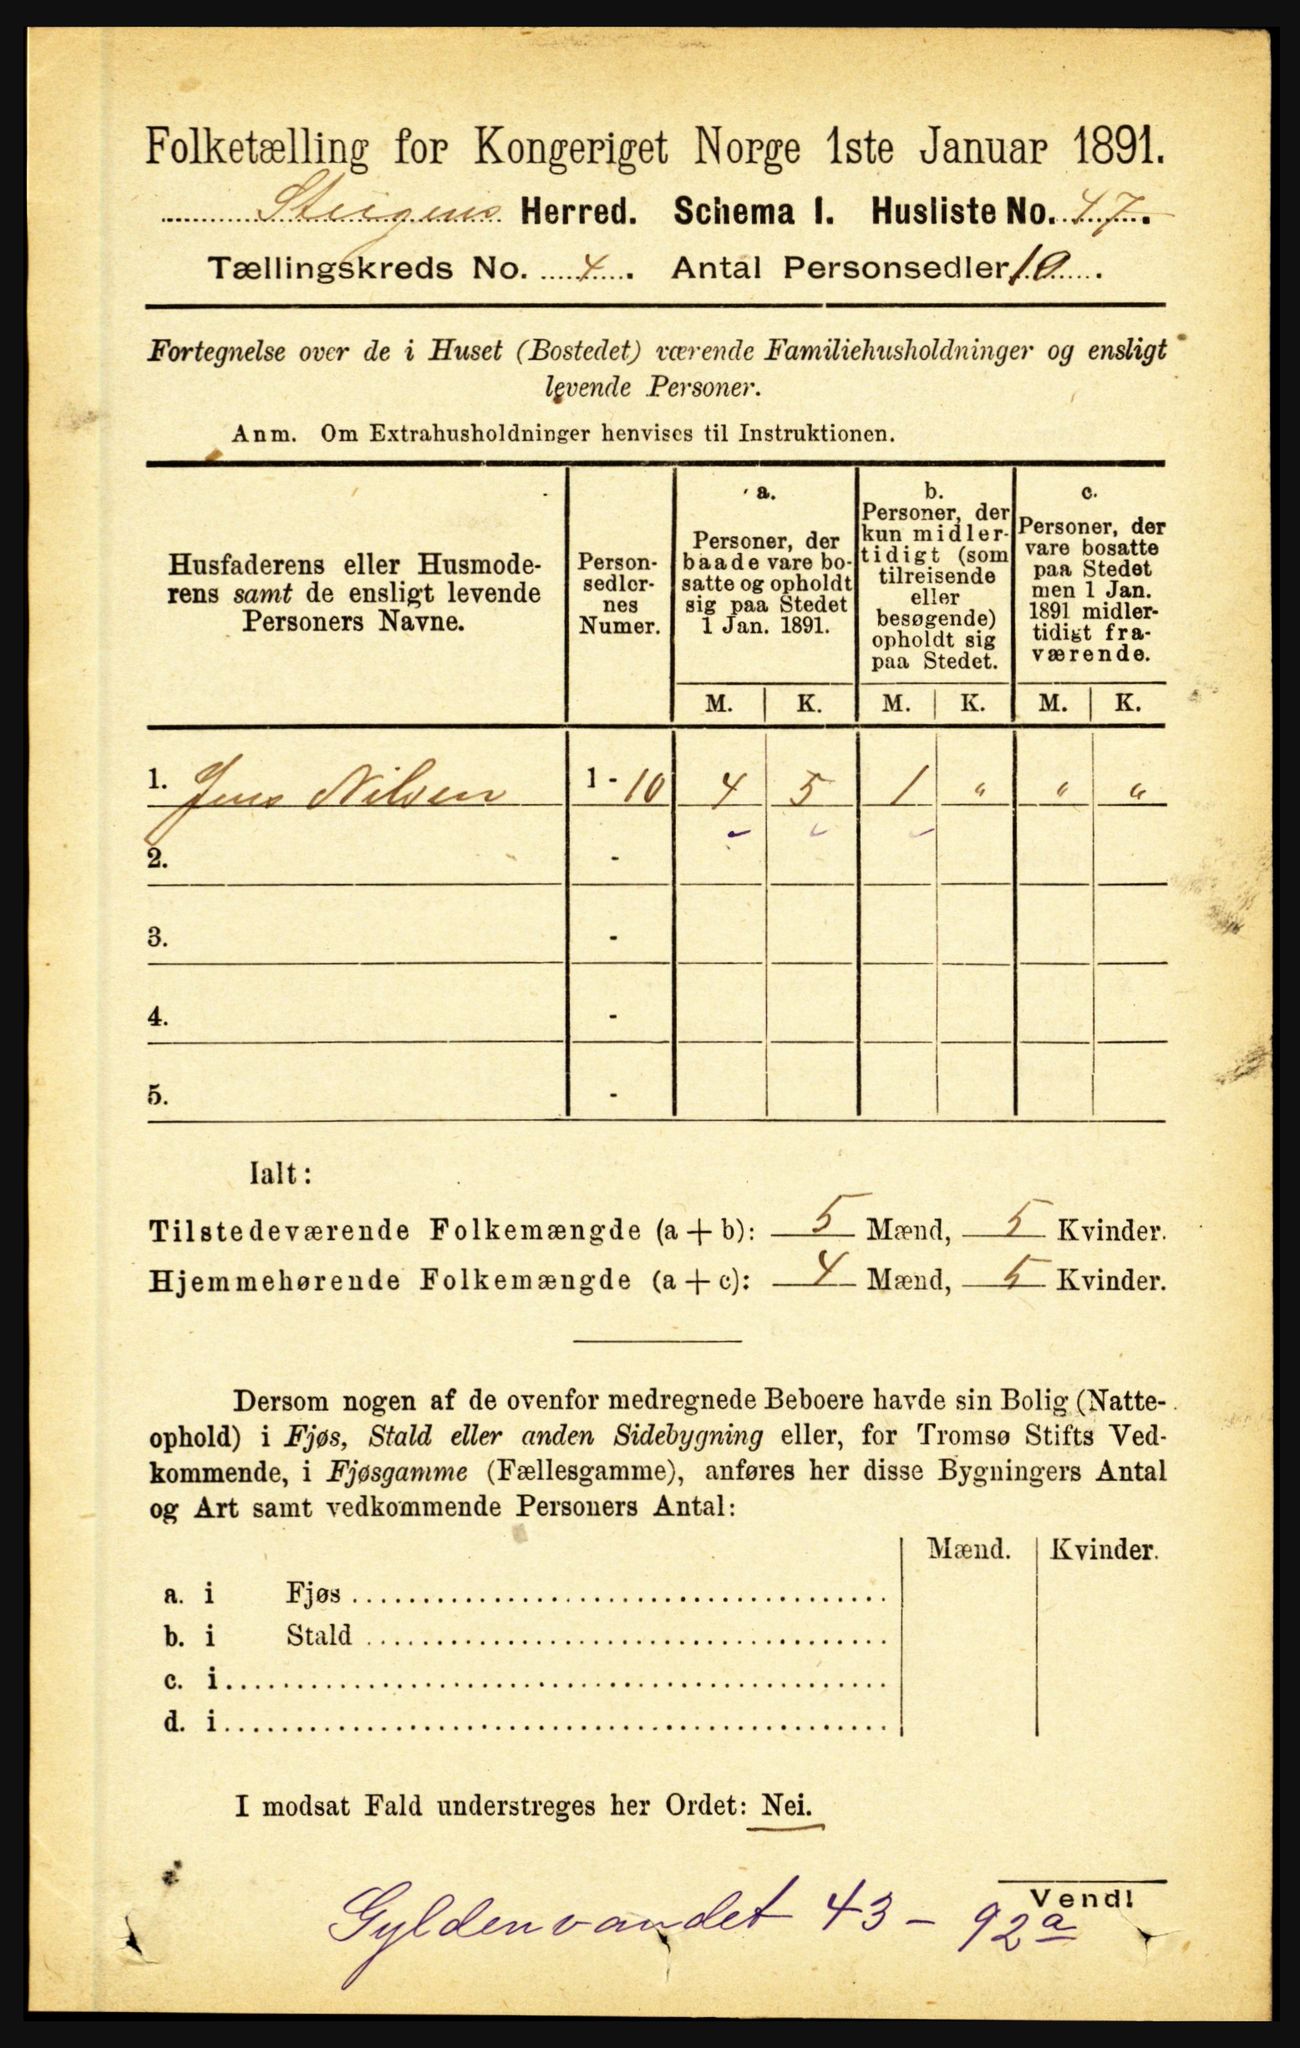 Folketælling for Kongeriget Norge 1ste Januar 1891.
Steigens Herred. Schema I. Husliste No. 47.
Tællingskreds No. 4. Antal Personsedler 10.
Fortegnelse over de i Huset (Bostedet) værende Familiehusholdninger og ensligt
levende Personer.
Anm. Om Extrahusholdninger henvises til Instruktionen.
Husfaderens eller Husmode-
rens samt de ensligt levende
Personers Navne.
Person-
sedler-
nes
Numer.
a.
Personer, der
baade vare bo-
satte og opholdt
sig paa Stedet
1 Jan. 1891.
b.
Personer, der
kun midler-
tidigt (som
tilreisende
eller
besøgende)
opholdt sig
paa Stedet.
c.
Personer, der
vare bosatte
paa Stedet
men 1 Jan.
1891 midler-
tidigt fra-
værende.
M. K. M. K. M. K.
1. Jens Nilsen 1 - 10 4 5 1 " " "
2. -
3. -
4. -
5. -
Ialt:
Tilstedeværende Folkemængde (a + b): 5 Mænd, 5 Kvinder.
Hjemmehørende Folkemængde (a + c): 4 Mænd, 5 Kvinder.
Dersom nogen af de ovenfor medregnede Beboere havde sin Bolig (Natte-
ophold) i Fjøs, Stald eller anden Sidebygning eller, for Tromsø Stifts Ved-
kommende, i Fjøsgamme (Fællesgamme), anføres her disse Bygningers Antal
og Art samt vedkommende Personers Antal:
Mænd. Kvinder.
a. i Fjøs
b. i Stald
c. i
d. i
I modsat Fald understreges her Ordet: Nei.
Vend!
Gyldenvandet 43 - 92a